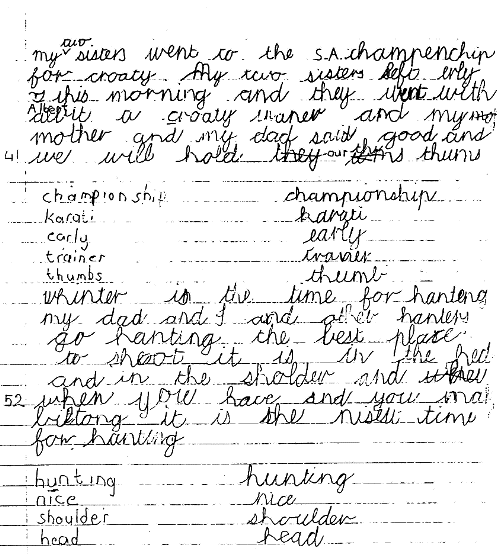 two
my sisters went to the S.A. champenchip
for croaty. My two sisters left erly
this morning and they went with
a croaty traner and my mot
mother and my dad said good and
41 we will hold our thums
championship championship
karati karati
early early
trainer traner
thumbs thumb
whinter is the time for hanteng
my dad and I and other hanters
go hanting the best place
to shoot it is in the hed
and in the sholder and
52 when you have and you ma
biltong it is the nisest time
for hanting
hunting hunting
nice nice
shoulder shoulder
head head